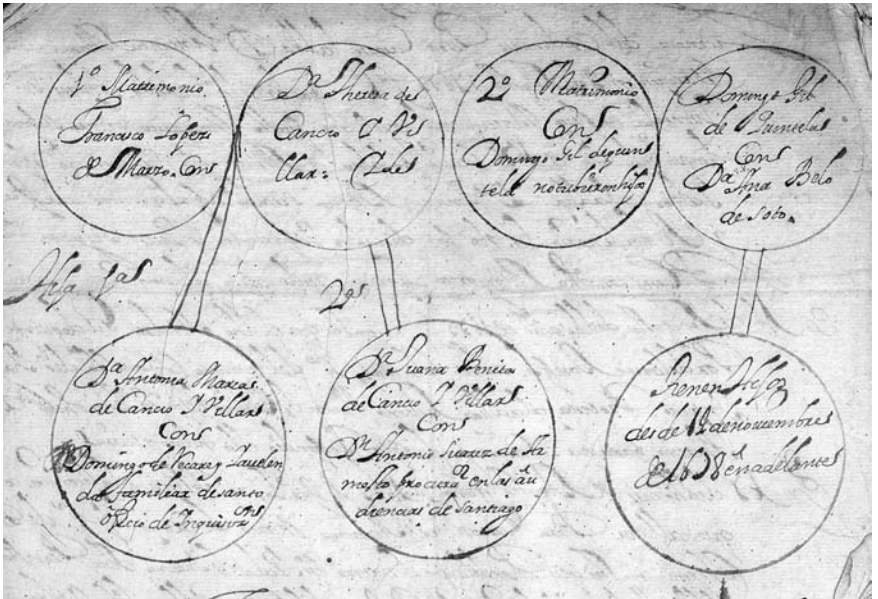 1º Matrimonio
Francisco Lopez
de Marzo. Con
Dª Theresa de
Cancio y Vi
llar:
2º Matrimonio
Con
Domingo Gil de quin
tela no tubieron hijos
Domingo Gil
de
Con
Dª Ana Belo
de Soto.
Hija 1ª
2ª
Dª Antonia Maria
de Cancio y Villar
Con
Domingo de
da familiar de santo
oficio de Inquisizon
Dª Juana Benita
de Cancio y Villar
Con
Dn Antonio Suarez de Ar
mesto procurador en las au
diencias de Santiago
tienen Hijos
desde 12 de noviembre
de 1698 en adelante